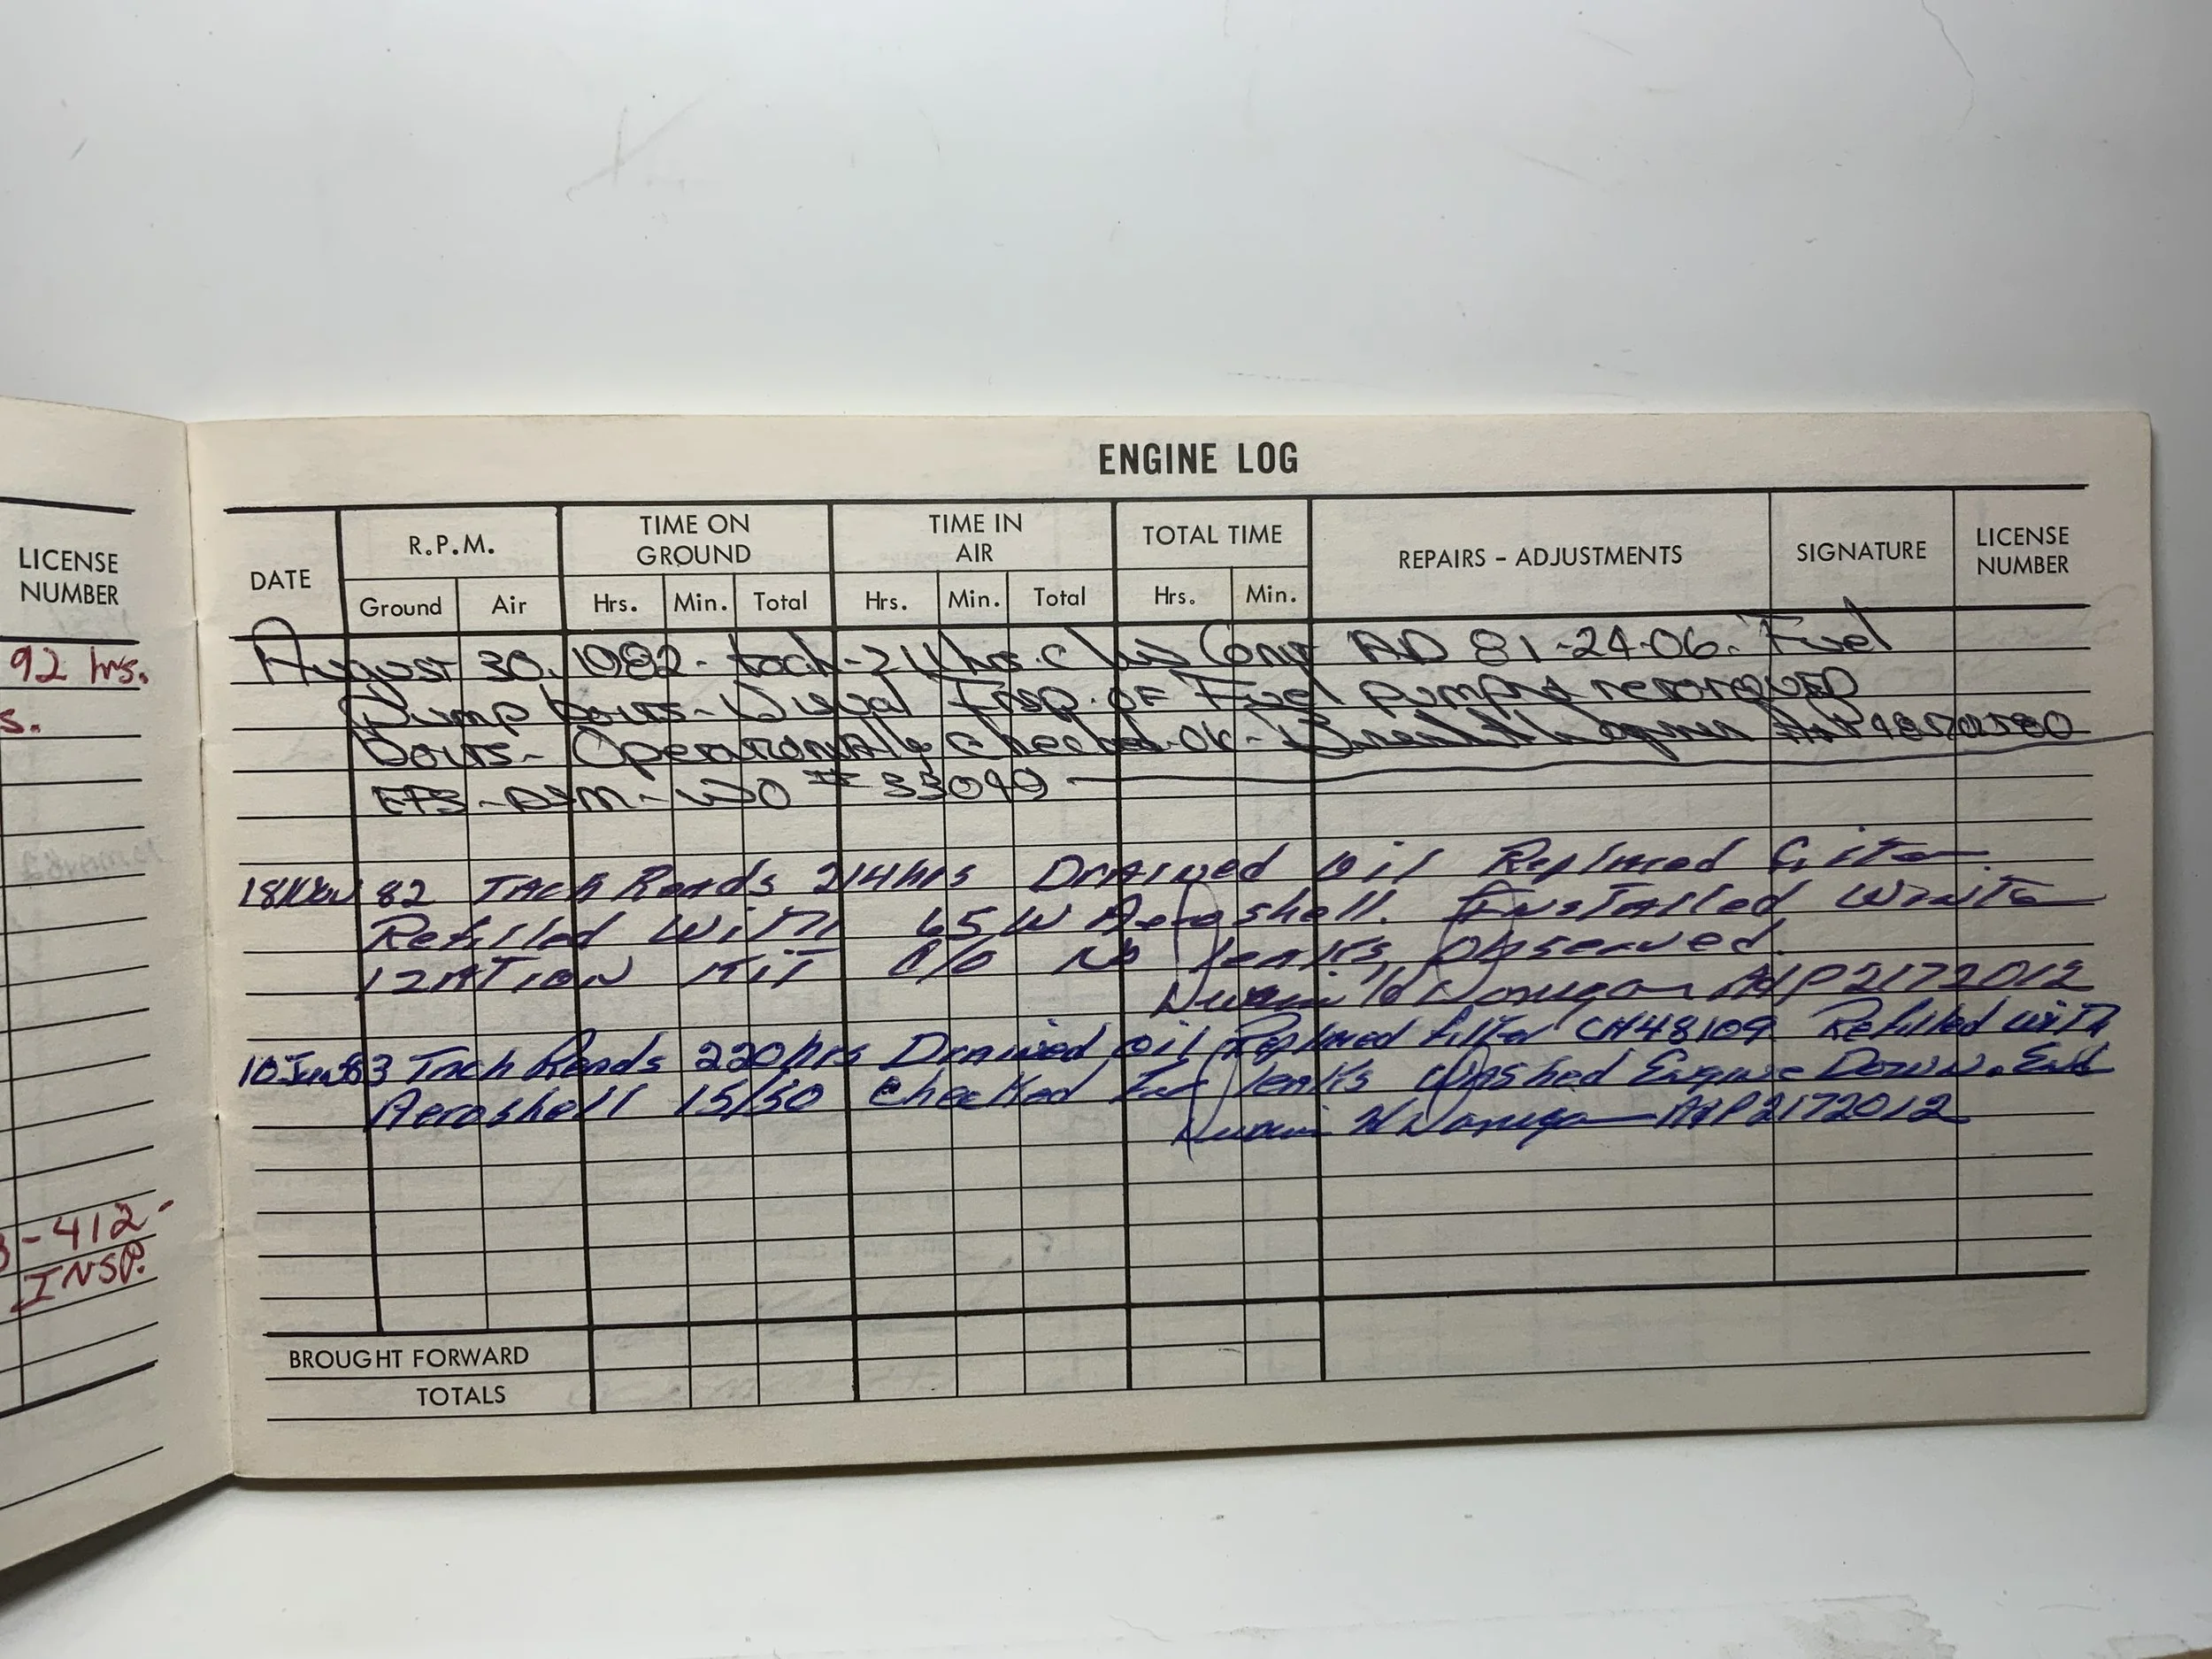 LICENSE
NUMBER
92 hrs.
s.
-412-
INSP.
ENGINE LOG
DATE
R.P.M.
Ground Air
TIME ON
GROUND
Hrs. Min. Total
TIME IN
AIR
Hrs. Min. Total
TOTAL TIME
Hrs. Min.
REPAIRS - ADJUSTMENTS
SIGNATURE
LICENSE
NUMBER
August 30, 1982 - tach - 211 hrs. C/W Comp AD 81-24-06. Fuel
Pump bolts - Visual Insp. of Fuel pump & retorqued
bolts - Operationally checked OK -
WO # 33099
18 Nov 82 Tach Reads 214 hrs Drained oil Replaced filter
Refilled with 65W Aeroshell. Installed Winter
IZATION KIT C/O No leaks observed.
A&P 2172012
10 Jun 83 Tach Reads 220 hrs Drained oil Replaced filter CH48109 Refilled with
Aeroshell 15/50 Checked For leaks Washed Engine Down.
A&P 2172012
BROUGHT FORWARD
TOTALS